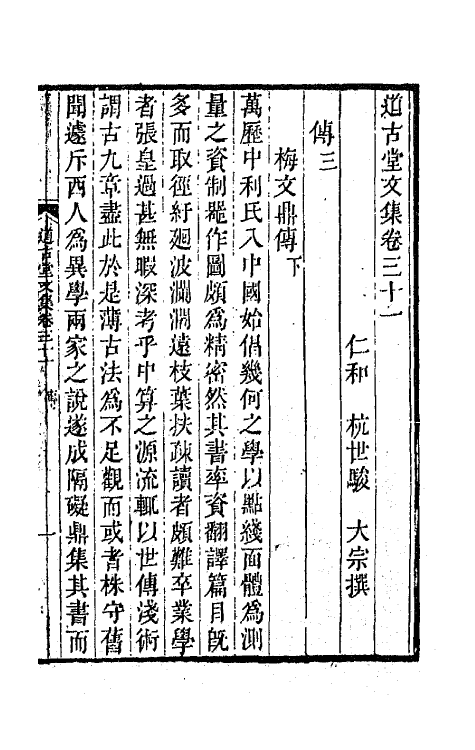 道古堂文集卷三十一
仁和 杭世駿 大宗撰
傳三
梅文鼎傳下
萬歷中利氏入中國始倡幾何之學以點綫面體為測
量之資制器作圖頗為精密然其書率資翻譯篇目旣
多而取徑紆廻波瀾濶遠枝葉扶疎讀者頗難卒業學
者張皇過甚無暇深考乎中算之源流輒以世傳淺術
謂古九章盡此於是薄古法為不足觀而或者株守舊
聞遽斥西人為異學兩家之說遂成隔礙鼎集其書而
道古堂文集卷三十一
傳
一